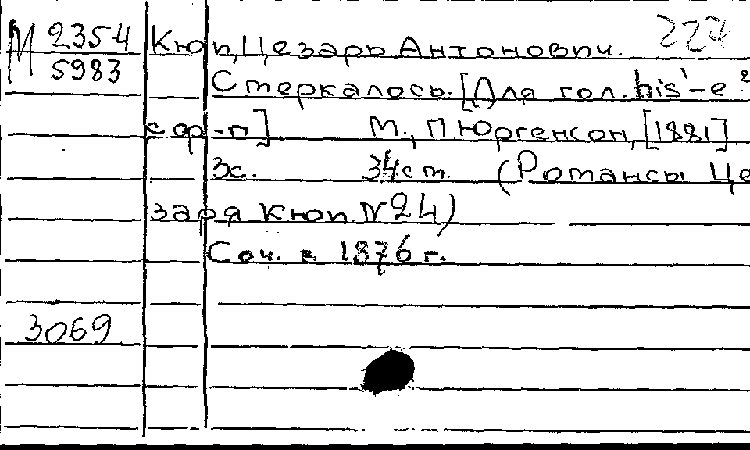 М 2354 Кюи, Цезарь Антонович. 227
5983 Стеркалось. [Для гол. his'-e²
с фр-п] М., П. Юргенсон, [1881]
3с. 34см. (Романсы Це
заря Кюи. N24)
Соч. в 1876 г.
3069